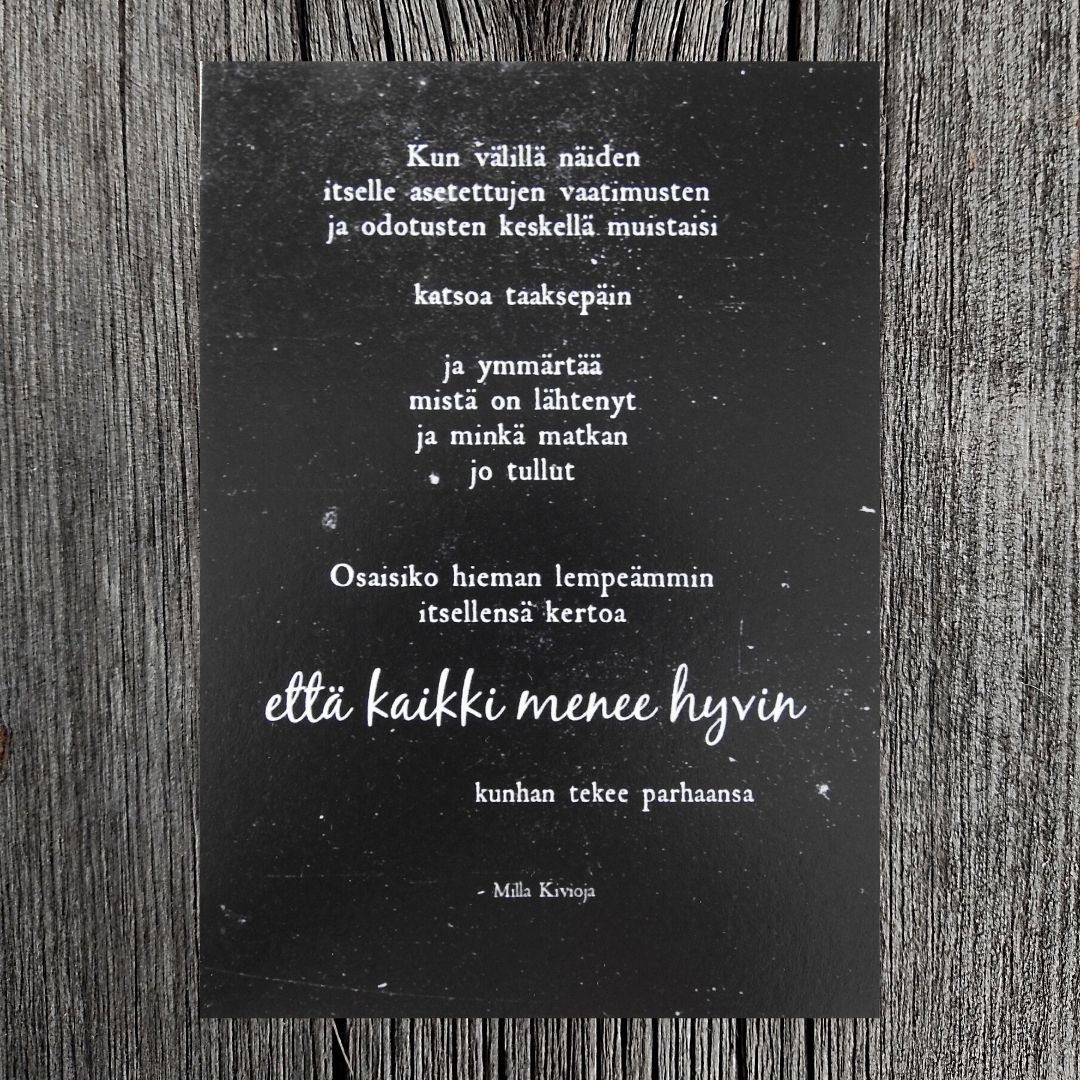 Kun välillä näiden
itselle asetettujen vaatimusten
ja odotusten keskellä muistaisi
katsoa taaksepäin
ja ymmärtää
mistä on lähtenyt
ja minkä matkan
jo tullut
Osaisiko hieman lempeämmin
itsellensä kertoa
että kaikki menee hyvin
kunhan tekee parhaansa
- Milla Kivioja